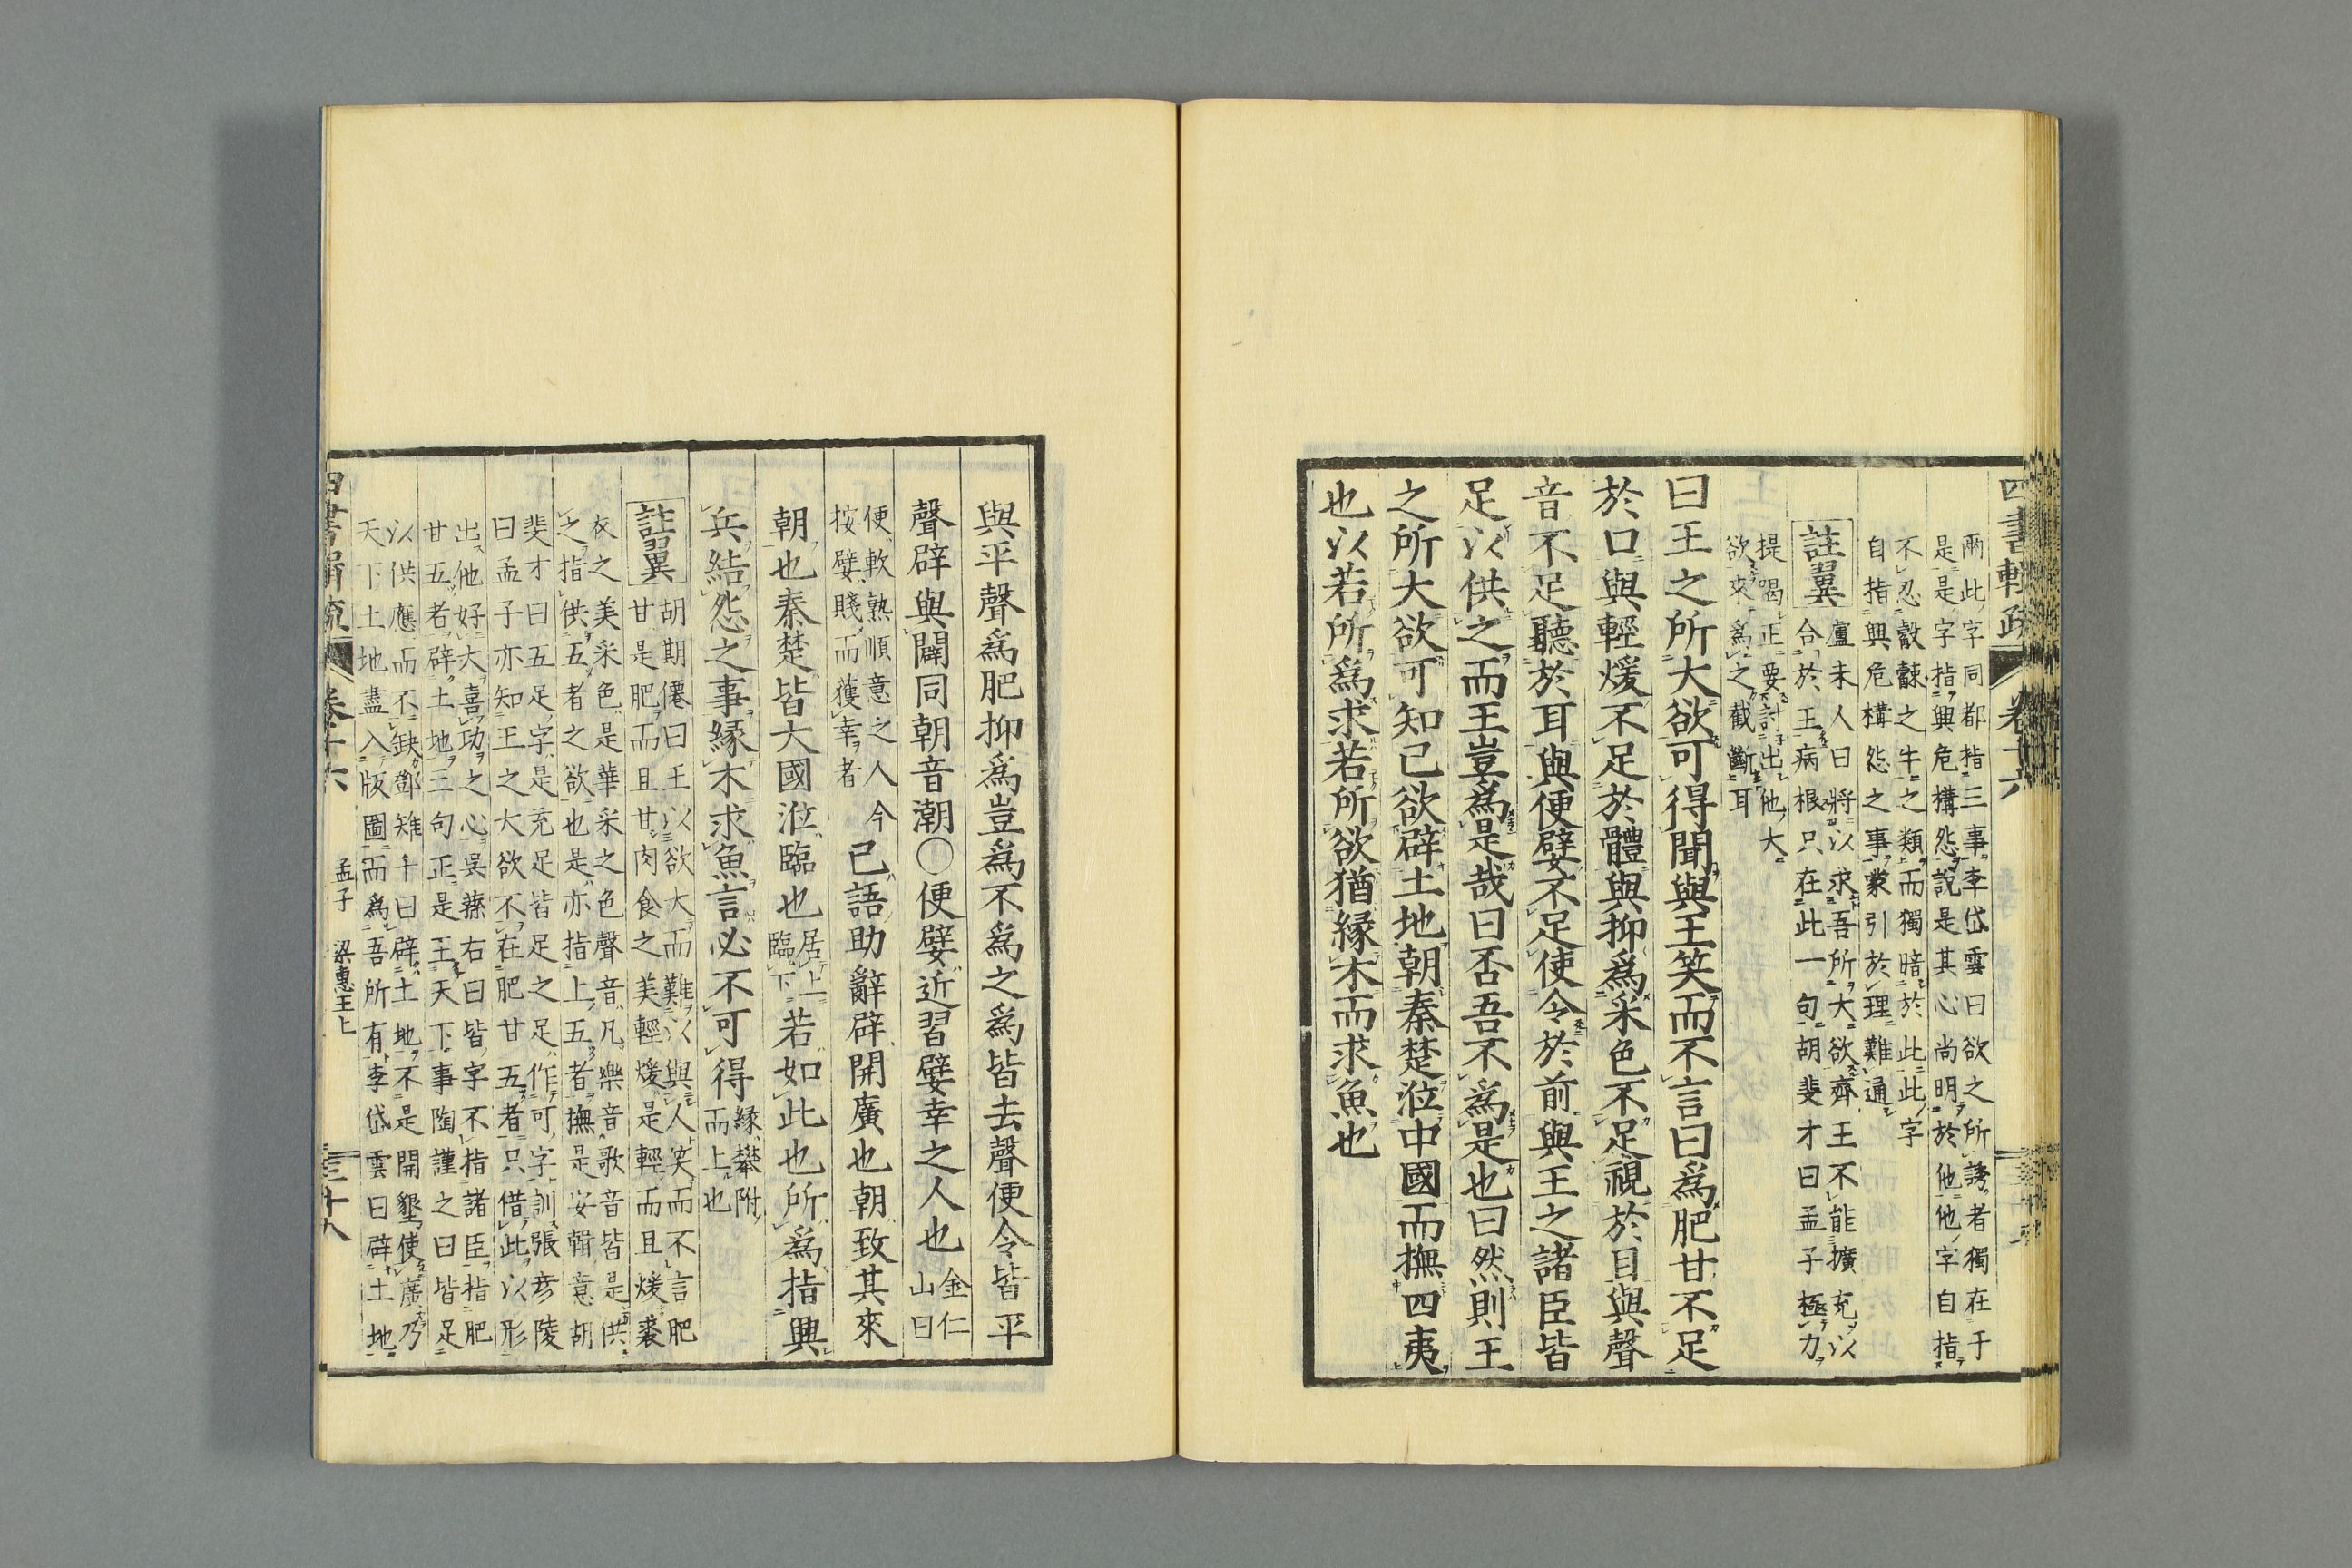 四書輯疏 卷十六
兩此字同都指三事李岱雲曰欲之所誘者獨在于
是是字指興危構怨說是其心尚明於他他字自指
不忍觳觫之牛之類而獨暗於此此字
自指興危構怨之事蒙引於理難通
註翼
盧未人曰將以求吾所大欲齊王不能擴充以
合於王病根只在此一句胡斐才曰孟子極力
提喝正要討出他大
欲來爲之截斷耳
曰王之所大欲可得聞與王笑而不言曰爲肥甘不足
於口與輕煖不足於體與抑爲采色不足視於目與聲
音不足聽於耳與便嬖不足使令於前與王之諸臣皆
足以供之而王豈爲是哉曰否吾不爲是也曰然則王
之所大欲可知已欲辟土地朝秦楚涖中國而撫四夷
也以若所爲求若所欲猶緣木而求魚也
與平聲爲肥抑爲豈爲不爲之爲皆去聲便令皆平
聲辟與闢同朝音潮〇便嬖近習嬖幸之人也金仁
山曰
便軟熟順意之人今
按嬖賤而獲幸者
已語助辭辟開廣也朝致其來
朝也秦楚皆大國涖臨也居上
臨下若如此也所爲指興
兵結怨之事緣木求魚言必不可得緣攀附
而上也
註翼
胡期僊曰王以欲大而難以與人笑而不言肥
甘是肥而且甘肉食之美輕煖是輕而且煖裘
衣之美采色是華采之色聲音凡樂音歌音皆是供
之指供五者之欲也是亦指上五者撫是安輯意胡
斐才曰五足字是充足皆足之足作可字訓張彥陵
曰孟子亦知王之大欲不在肥甘五者只借此以形
出他好大喜功之心吳蓀右曰皆字不指諸臣指肥
甘五者辟土地三句正是王天下事陶謹之曰皆足
以供應而不缺鄧雉千曰辟土地不是開墾使廣乃
天下土地盡入版圖而爲吾所有李岱雲曰辟土地
四書輯疏 卷十六 孟子 梁惠王上 三十八